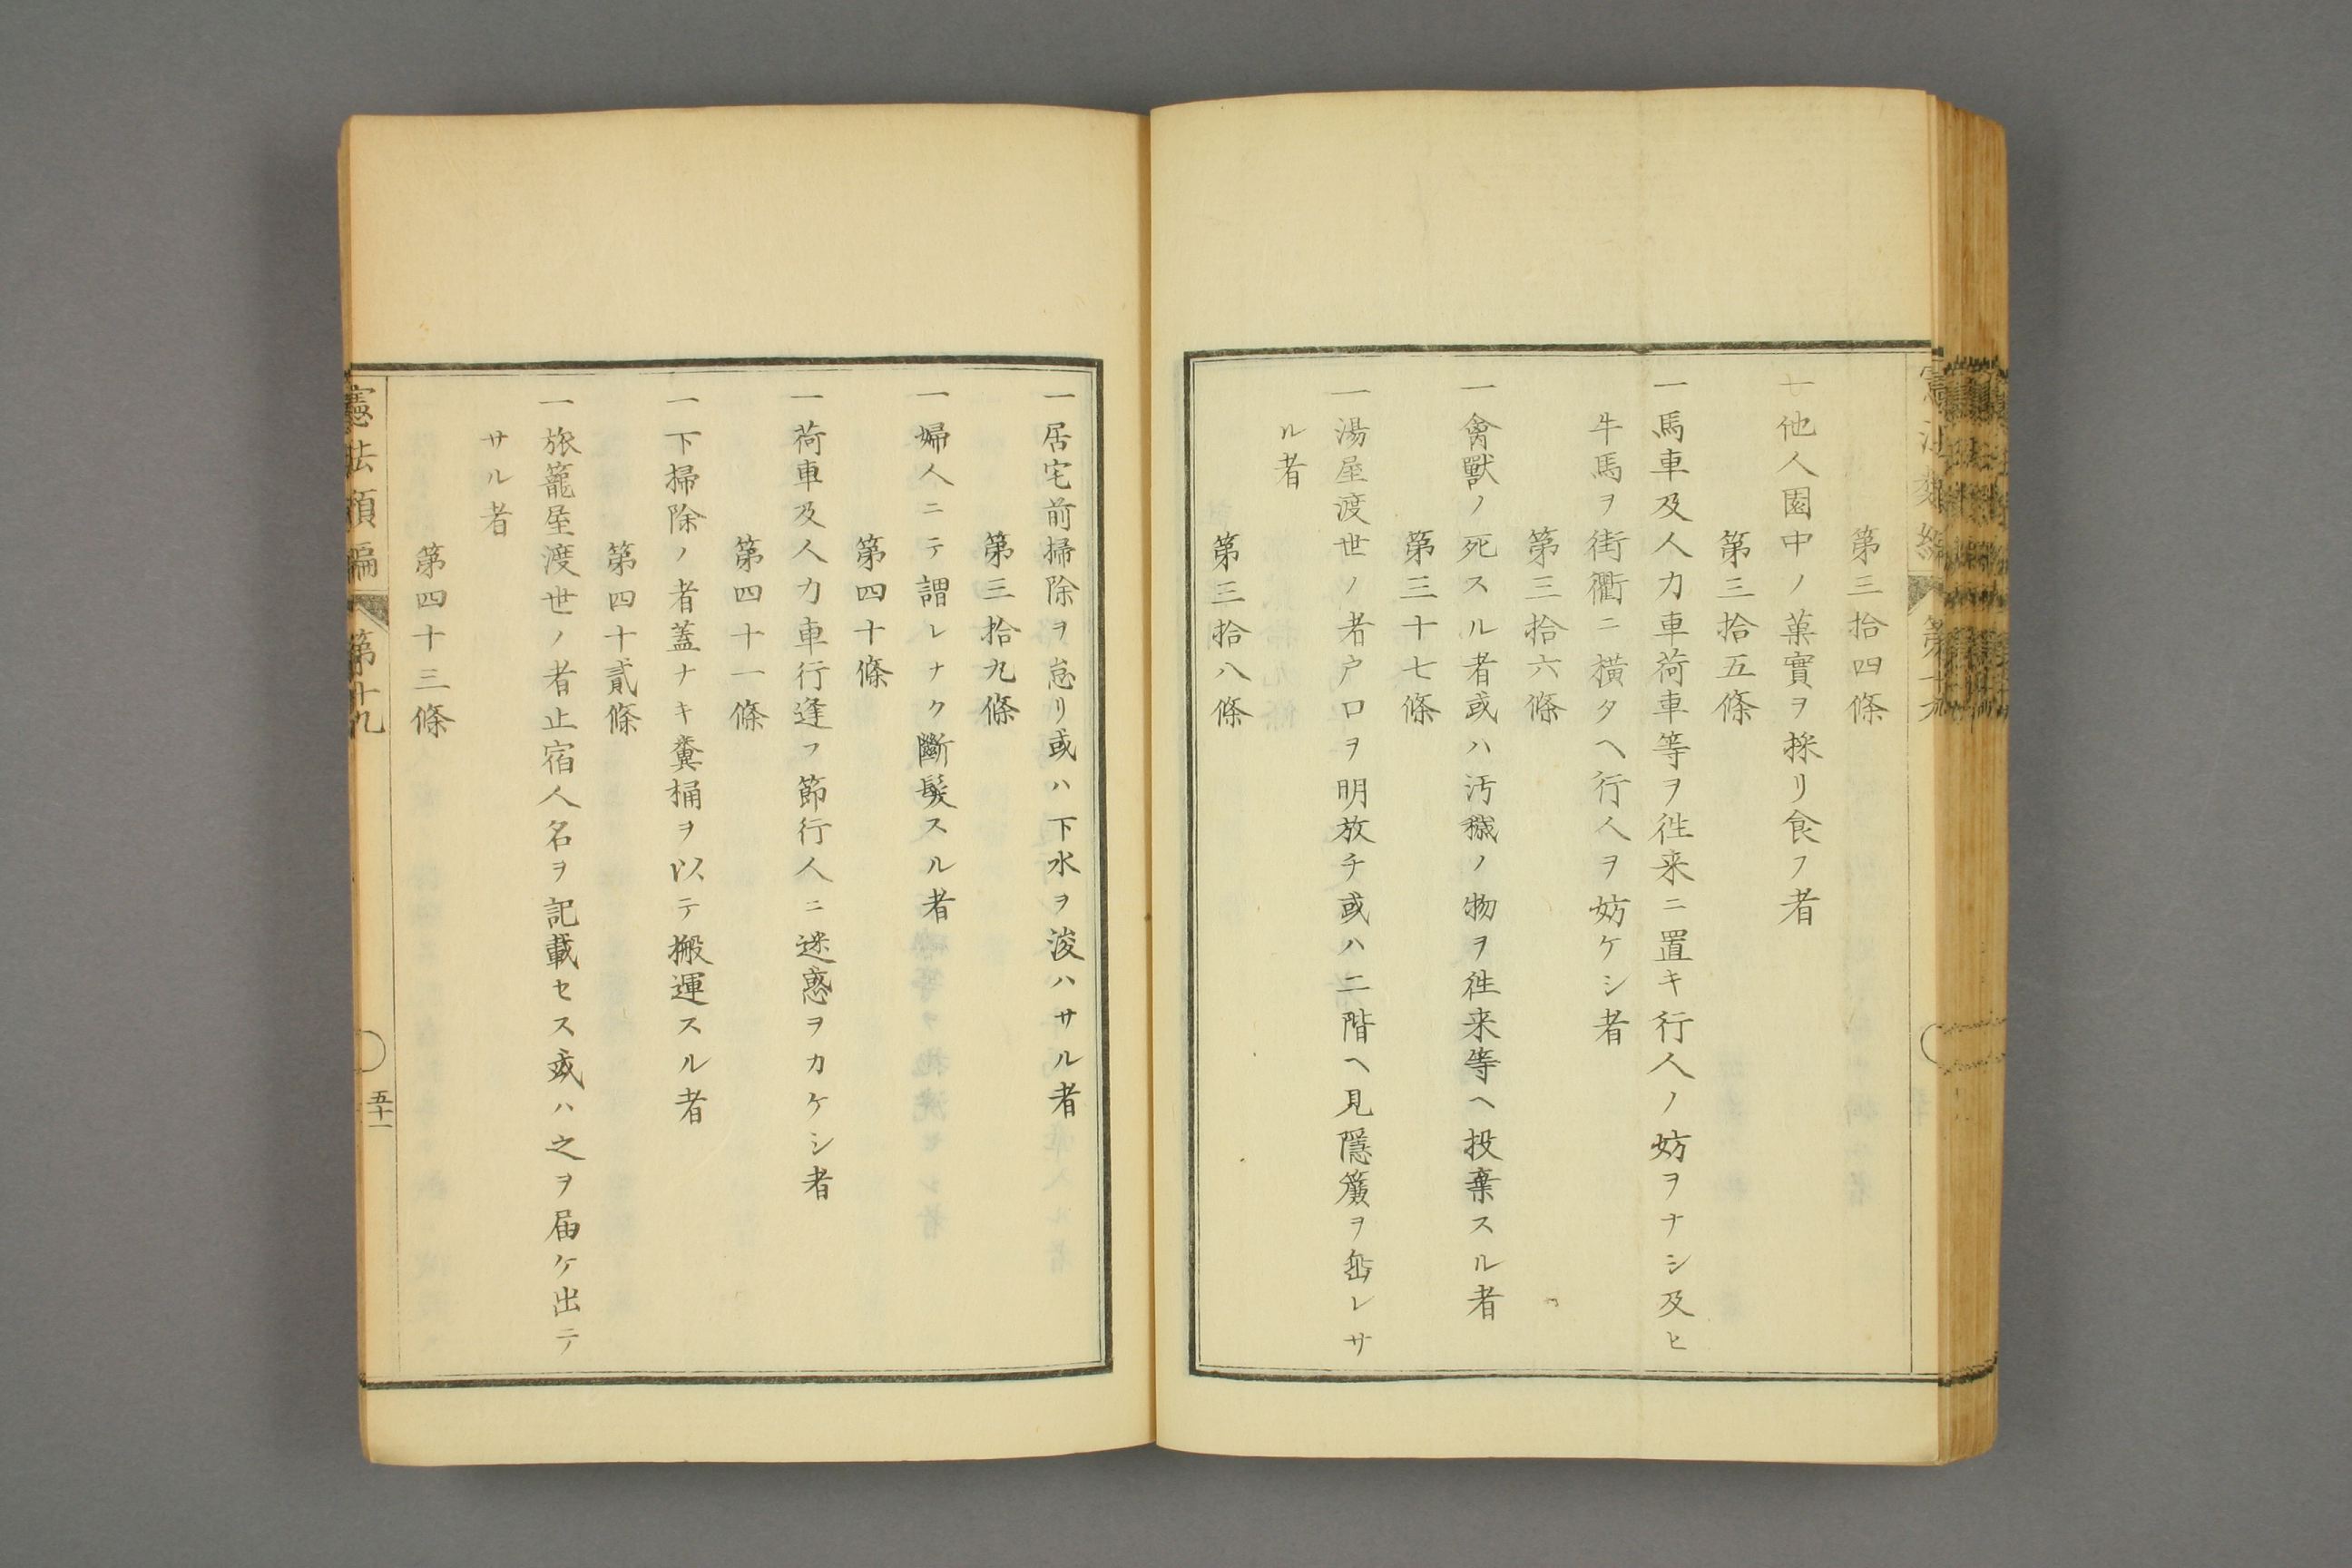 第三拾四條
一他人園中ノ菓實ヲ採リ食フ者
第三拾五條
一馬車及人力車荷車等ヲ徃来ニ置キ行人ノ妨ヲナシ及ヒ
牛馬ヲ街衢ニ横タヘ行人ヲ妨ケシ者
第三拾六條
一禽獸ノ死スル者或ハ汚穢ノ物ヲ徃来等ヘ投棄スル者
第三十七條
一湯屋渡世ノ者戸口ヲ明放チ或ハ二階ヘ見隱簾ヲ垂レサ
ル者
第三拾八條
一居宅前掃除ヲ怠リ或ハ下水ヲ浚ハサル者
第三拾九條
一婦人ニテ謂レナク斷髮スル者
第四十條
一荷車及人力車行逢フ節行人ニ迷惑ヲカケシ者
第四十一條
一下掃除ノ者蓋ナキ糞桶ヲ以テ搬運スル者
第四十貳條
一旅籠屋渡世ノ者止宿人名ヲ記載セス或ハ之ヲ届ケ出テ
サル者
第四十三條
憲法類編 第十九
五十一